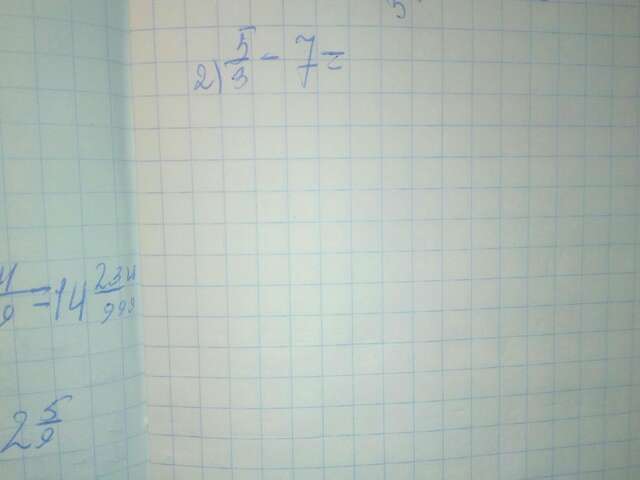 5
2) 5/3 - 7 =
= 14 234/999
2 5/9